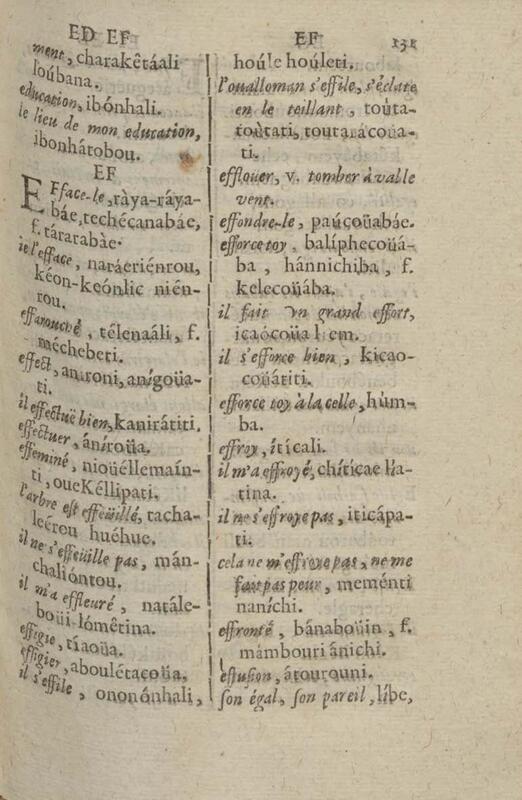 ED EF
ment, charakêtáali
loúbana.
education, ibónhali.
le lieu de mon education,
ibonhátobou.
EF
EFface-le, ràya-ráya-
báe, techécanabáe,
f. tárarabàe.
ie l'efface, naráeriénrou,
kéon-keónlic nién-
rou.
effarouché, télenaáli, f.
mécheberi.
effect, aníroni, anígoüa-
ti.
il effectuë bien, kanirátiti.
effectuer, ániroüa.
effeminé, nioüéllemaín-
ti, oueKéllipati.
l'arbre est effeüillé, tacha-
leérou huéhue.
il ne s'effeüille pas, mán-
chalióntou.
il m'a effleuré, natále-
boüi-lómêtina.
effigie, tíaoüa.
effigier, aboulétacoüa.
il s'effile, ononónhali,
EF 131
hoúle houleti.
l'oualloman s'effile, s'éclate
en le teillant, toùta-
toùtati, toutarácoüa-
ti.
efflouer, v. tomber à valle
vent.
effondre-le, paúcoüabáe.
efforce toy, balíphecoüá-
ba, hánnichiba, f.
kelecoüába.
il fait vn grand effort,
icaócoüa l em.
il s'efforce bien, kicao-
coüátiti.
efforce toy à la celle, húm-
ba.
effroy, íticali.
il m'a effroyé, chíticae l'ia-
tina.
il ne s'effroye pas, iticápa-
ti.
cela ne m'effroye pas, ne me
fait pas peur, meménti
naníchi.
effronté, bánaboüin, f.
mámbouri ánichi.
éfusion, átourouni.
son égal, son pareil, líbe,